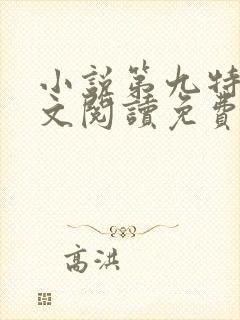 小説第九特
文閱讀免費
高洪